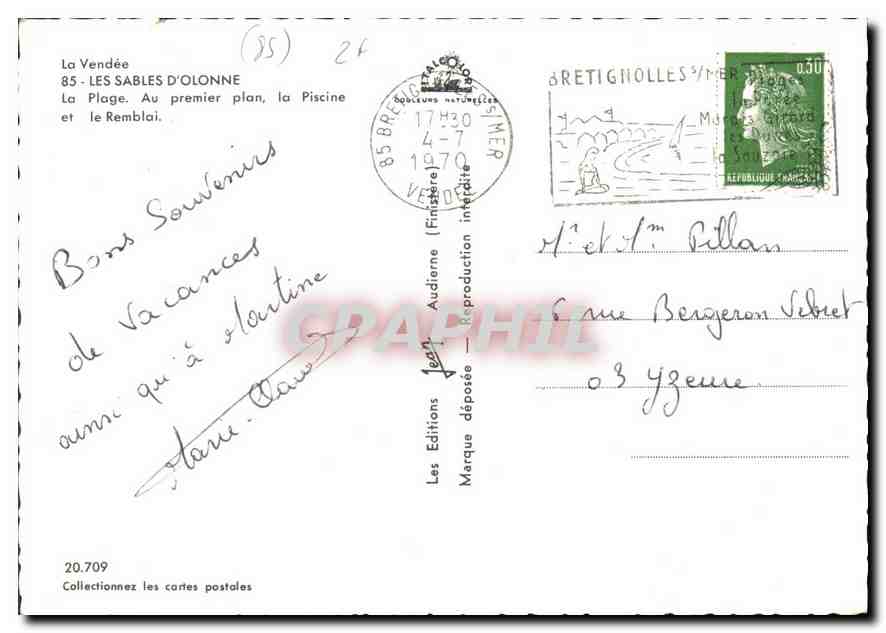 (85) 2f
La Vendée
85 - LES SABLES D'OLONNE
La Plage. Au premier plan, la Piscine
et le Remblai.
Bons Souvenirs
de Vacances
ainsi qu'à Martine
Marie-
20.709
Collectionnez les cartes postales
ITALCOLOR
COULEURS NATURELLES
85 BRETIGNOLLES S/MER
17H30
4-7
1970
VENDEE
Les Editions Jean Audierne (Finistère)
Marque déposée — Reproduction interdite
BRETIGNOLLES S/MER
Plages
Marais Girard
la Sauzaie
0.30
REPUBLIQUE FRANÇAISE
Mr et Mm Pillan
6 rue Bergeron Vebret
03 Yzeure.
CPAPHIL